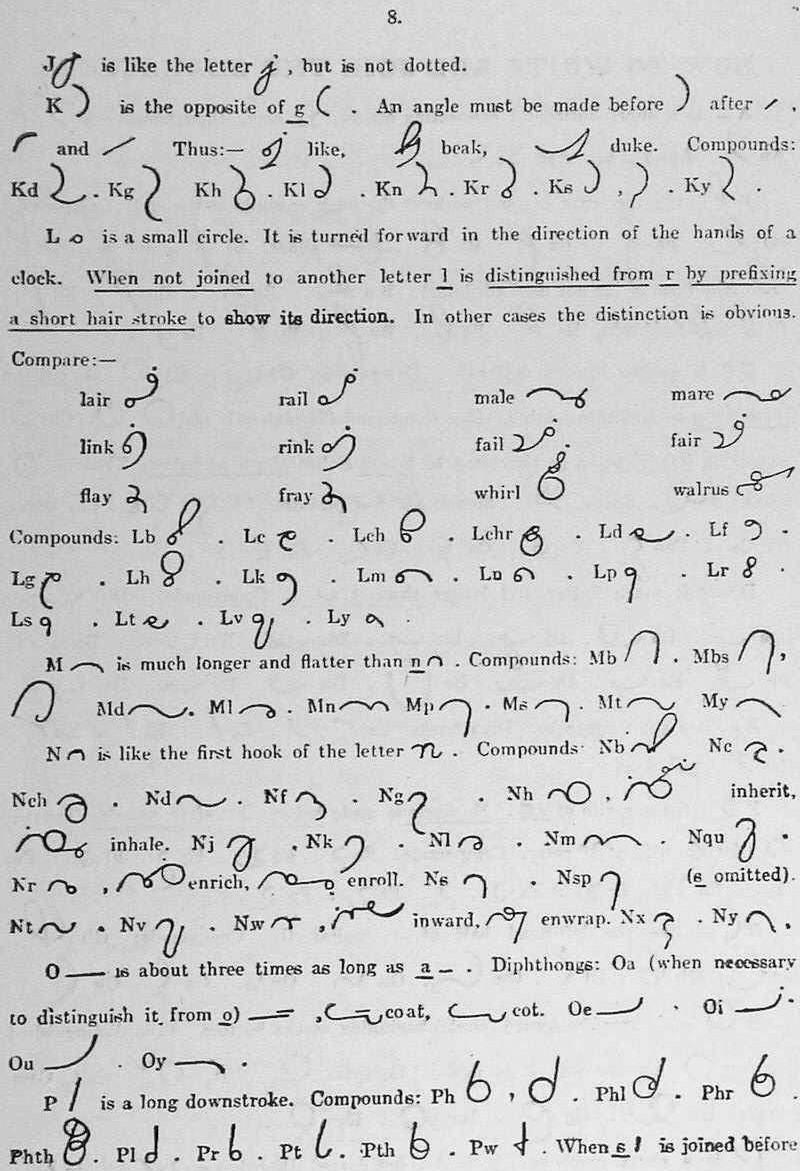 8.
J is like the letter j, but is not dotted.
K is the opposite of g . An angle must be made before after ,
and Thus:— like, beak, duke. Compounds:
Kd . Kg Kh . Kl . Kn . Kr . Ks , . Ky .
L is a small circle. It is turned forward in the direction of the hands of a
clock. When not joined to another letter l is distinguished from r by prefixing
a short hair stroke to show its direction. In other cases the distinction is obvious.
Compare:—
lair rail male mare
link rink fail . fair
flay fray whirl walrus
Compounds: Lb . Lc . Lch . Lchr . Ld . Lf .
Lg . Lh . Lk . Lm . Ln . Lp . Lr .
Ls . Lt . Lv . Ly .
M is much longer and flatter than n . Compounds: Mb . Mbs ,
Md . Ml . Mn Mp . Ms . Mt My
N is like the first hook of the letter n . Compounds Nb Nc .
Nch . Nd . Nf . Ng . Nh , inherit,
inhale. Nj . Nk . Nl . Nm . Nqu .
Nr , enrich, enroll. Ns . Nsp (s omitted).
Nt . Nv . Nw , inward, enwrap. Nx . Ny ,
O is about three times as long as a . Diphthongs: Oa (when necessary
to distinguish it from o) , coat, cot. Oe . Oi .
Ou . Oy .
P is a long downstroke. Compounds: Ph , . Phl . Phr .
Phth . Pl . Pr . Pt . Pth . Pw . When s is joined before